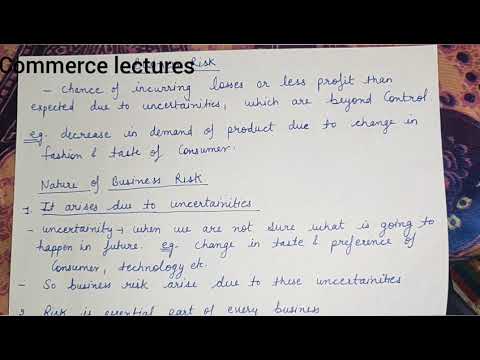 Commerce lectures
Business Risk
- Chance of incurring losses or less profit than
expected due to uncertainities, which are beyond Control
eg. decrease in demand of product due to change in
fashion & taste of Consumer.
Nature of Business Risk
1. It arises due to uncertainities
- uncertainity → when we are not sure what is going to
happen in future. eg. Change in taste & preference of
Consumer, technology etc.
- So business risk arise due to these uncertainities
2. Risk is essential part of every business